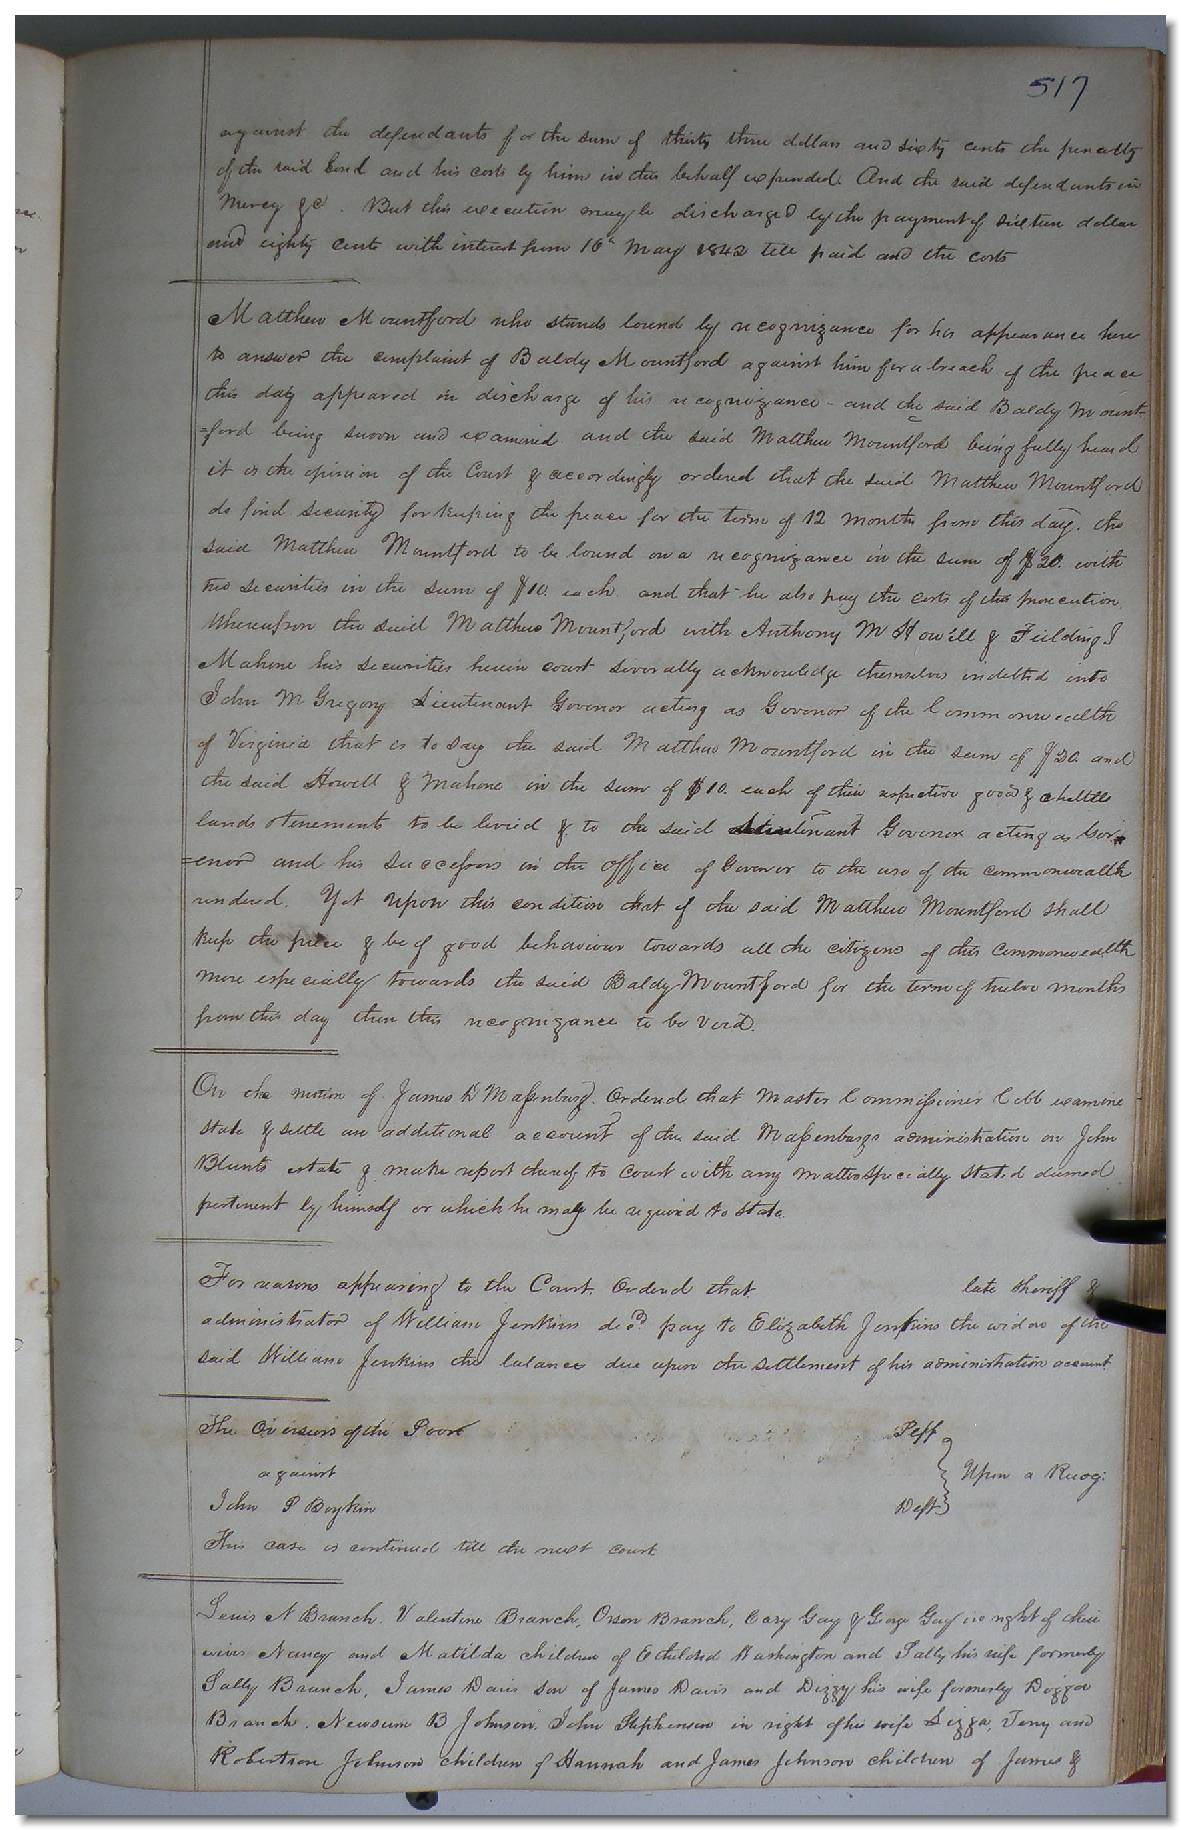 517
against the defendants for the sum of thirty three dollars and sixty cents the penalty
of the said bond and his costs by him in this behalf expended. And the said defendants in
Mercy &c. But this execution may be discharged by the payment of sixteen dollars
and eighty cents with interest from 16th May 1842 till paid and the costs
Matthew Mountford who stands bound by recognizance for his appearance here
to answer the complaint of Baldy Mountford against him for a breach of the peace
this day appeared in discharge of his recognizance - and the said Baldy Mount-
=ford being sworn and examined and the said Matthew Mountford being fully heard
it is the opinion of the Court & accordingly ordered that the said Matthew Mountford
do find security for keeping the peace for the term of 12 months from this day. the
said Matthew Mountford to be bound on a recognizance in the sum of $20. with
two securities in the sum of $10. each and that he also pay the costs of this prosecution.
Whereupon the said Matthew Mountford with Anthony M Howell & Fielding J
Mahone his securities herein court severally acknowledge themselves indebted unto
John M Gregory Lieutenant Govenor acting as Govenor of the Commonwealth
of Virginia that is to say the said Matthew Mountford in the sum of $20. and
the said Howell & Mahone in the sum of $10. each of their respective goods & chattles
lands & tenements to be levied & to the said Lieutenant Govenor acting as Gov-
=enor and his successors in the office of Govenor to the use of the commonwealth
rendered. Yet upon this condition that if the said Matthew Mountford shall
keep the peace & be of good behaviour towards all the citizens of this Commonwealth
more especially towards the said Baldy Mountford for the term of twelve months
from this day then this recognizance to be void.
On the motion of James D Massenburg. Ordered that Master Commissioner Cobb examine
state & settle an additional account of the said Massenburgs administration on John
Blunts estate & make report thereof to court with any matters specially stated deemed
pertinent by himself or which he may be required to state.
For reasons appearing to the Court. Ordered that late sheriff &
administrator of William Jenkins decd. pay to Elizabeth Jenkins the widow of the
said William Jenkins the balance due upon the settlement of his administration account.
The Overseers of the Poor Plff
against Upon a Recog:
John P Boykin Deft
This case is continued till the next court
Lewis N Branch. Valentine Branch, Orson Branch, Cary Gay & George Gay in right of their
wives Nancy and Matilda children of Etheldred Washington and Sally his wife formerly
Sally Branch, James Davis son of James Davis and Dizzy his wife formerly
Branch. Newsum B Johnson. John Stephenson in right of his wife and
Robertson Johnson children of Hannah and James Johnson children of James &